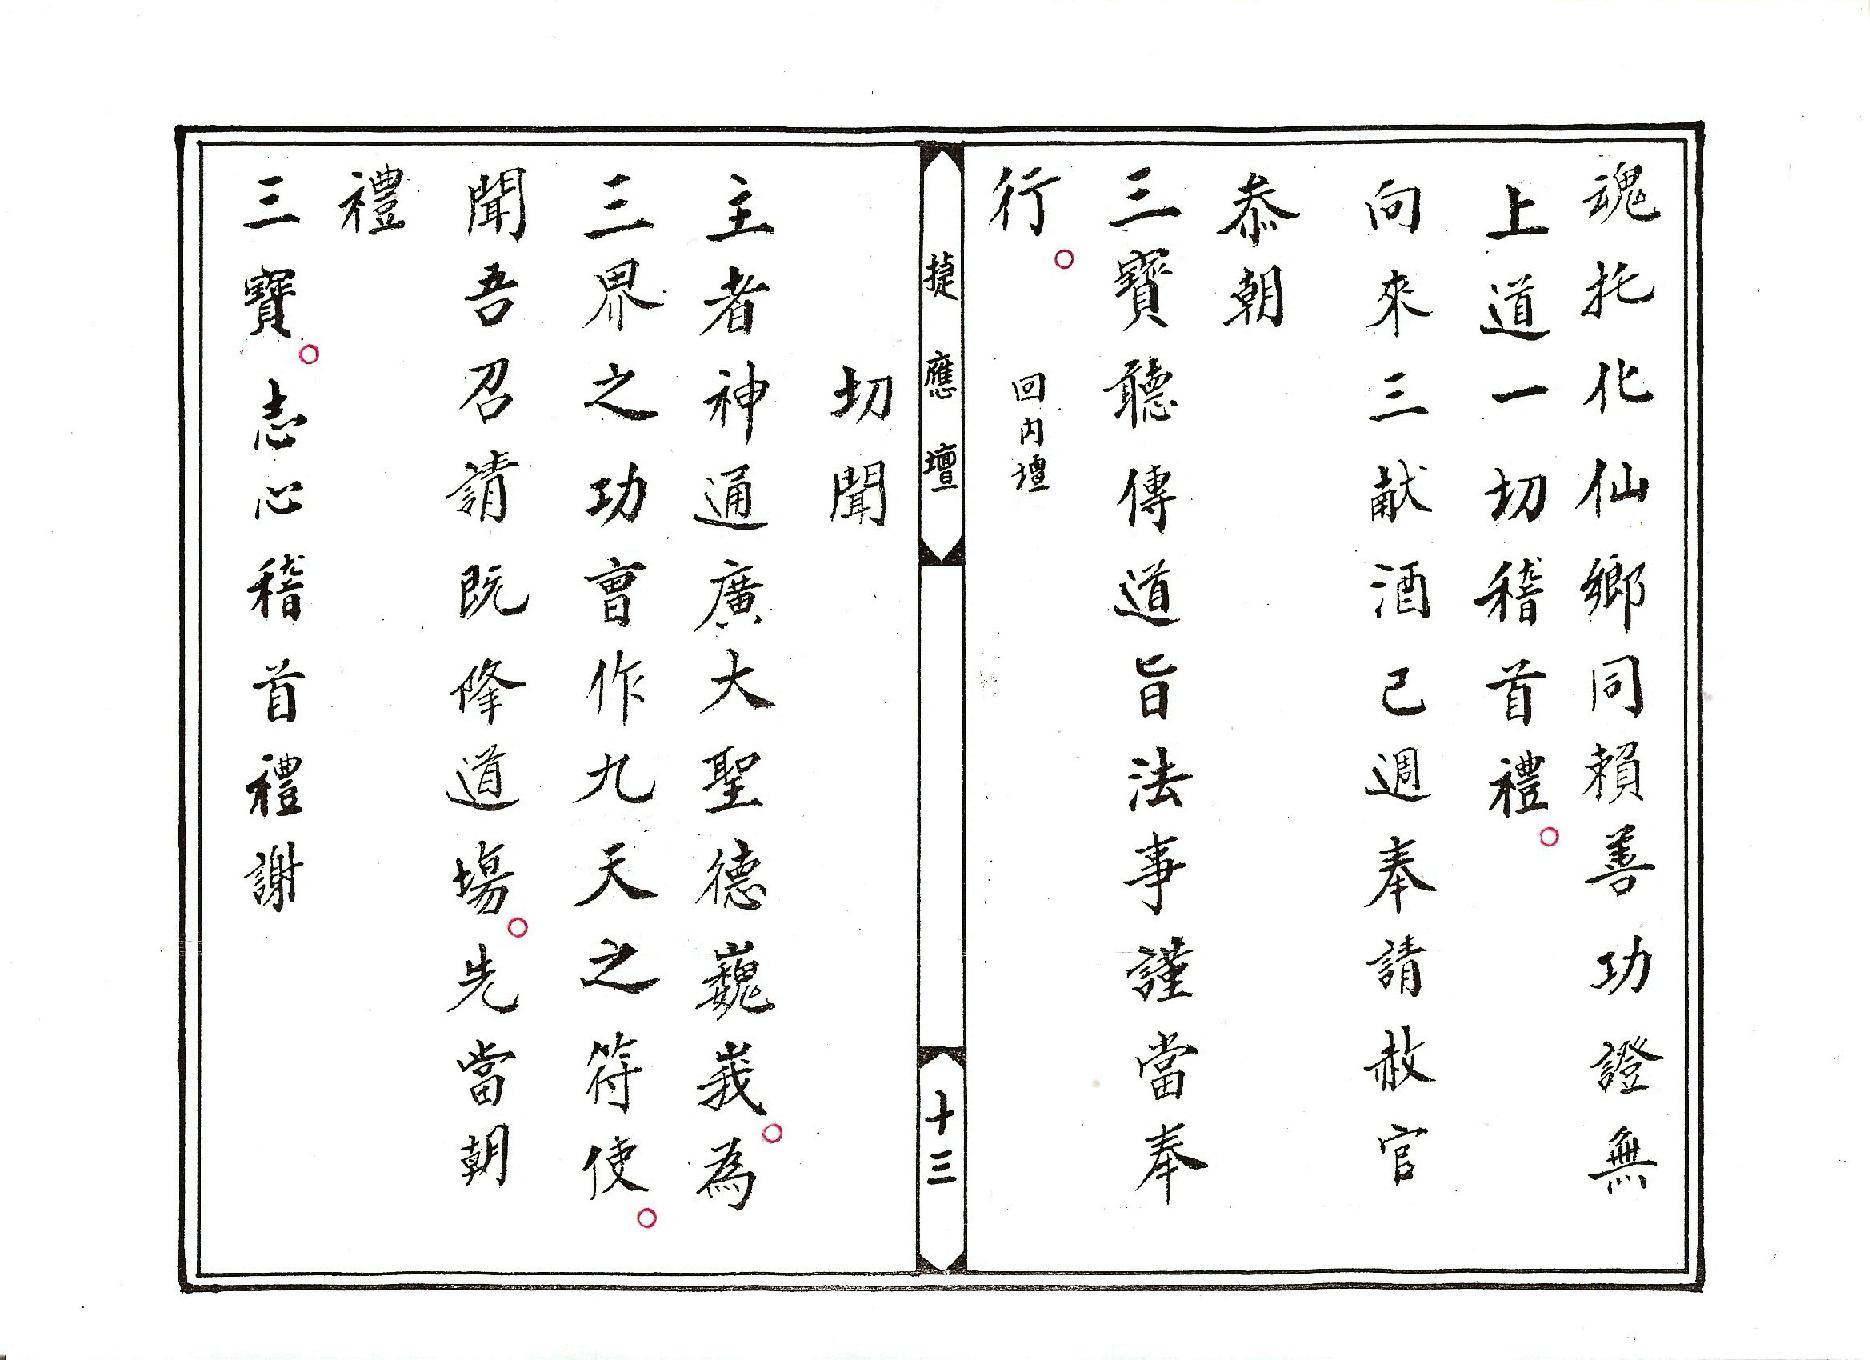 魂托化仙鄉同賴善功證無
上道一切稽首禮。
向來三献酒己週奉請赦官
恭朝
三寶聽傳道旨法事謹當奉
行。 回內壇
捷應壇 十三
切聞
主者神通廣大聖德巍峩。為
三界之功曹作九天之符使。
聞吾召請既降道場。先當朝
禮
三寶。志心稽首禮謝